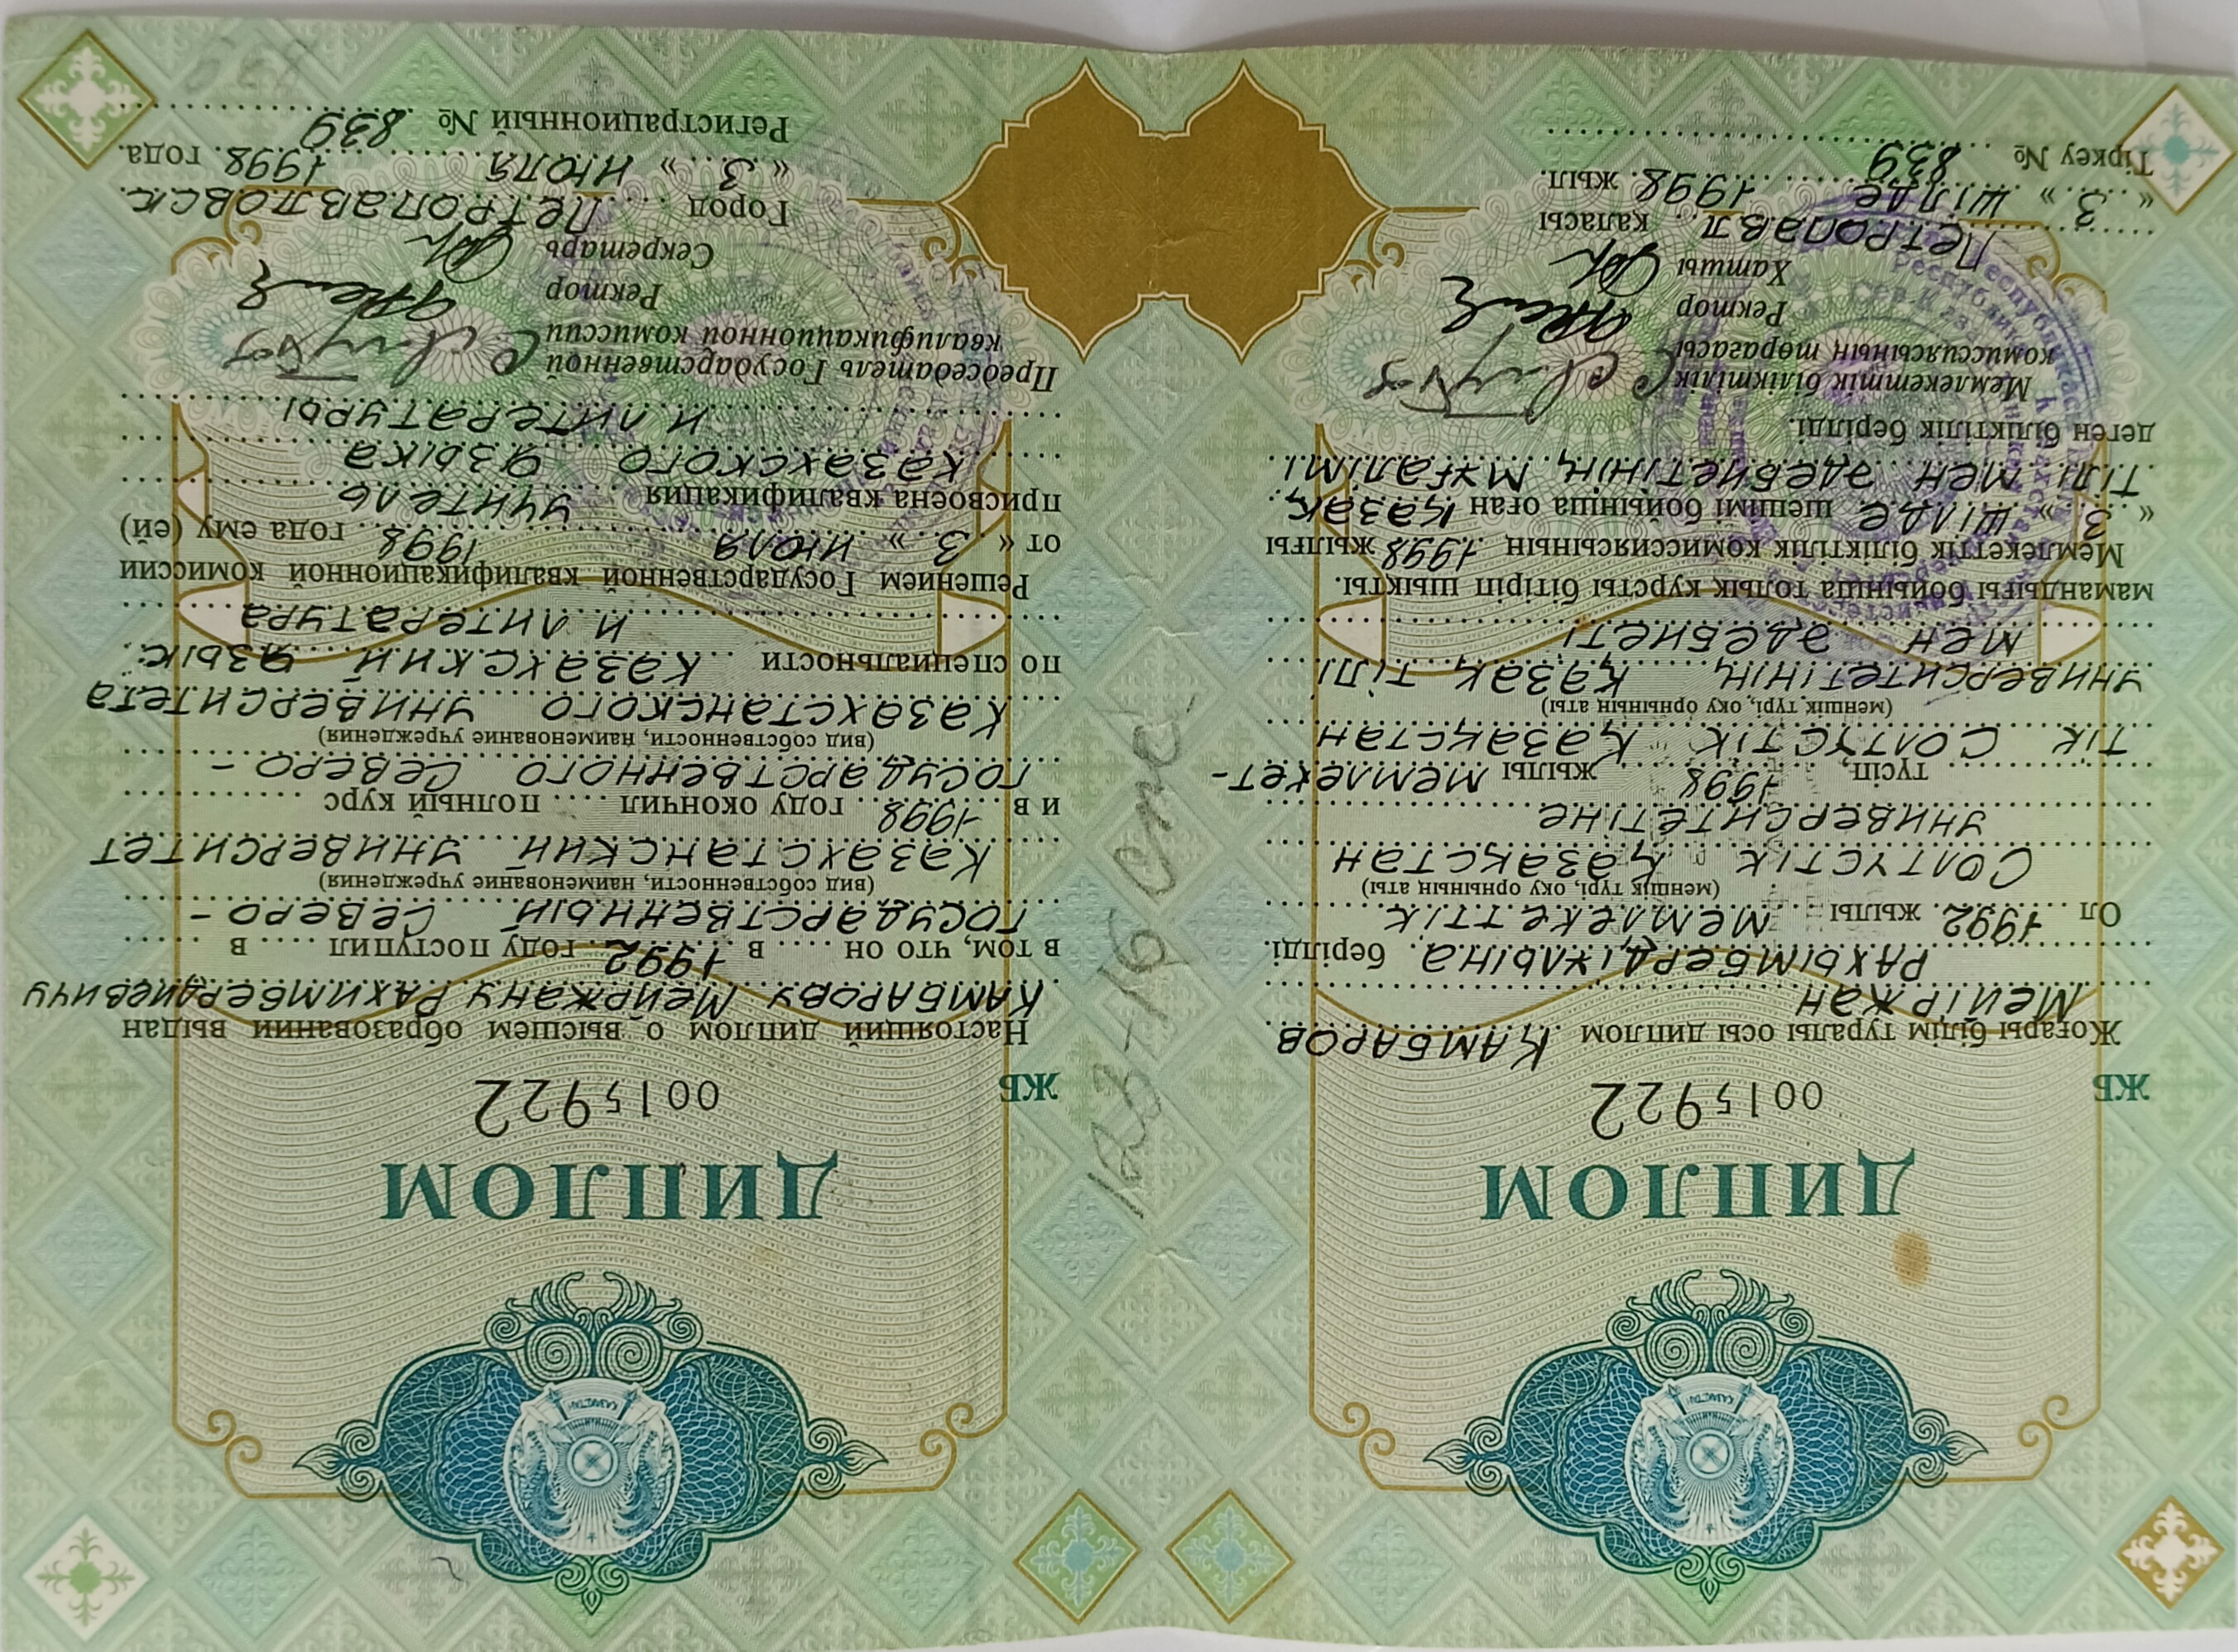 ДИПЛОМ
ЖБ 0015922
Жоғары білім туралы осы диплом ҚАМБАРОВ
МЕЙІРЖАН
РАХЫМБЕРДІҰЛЫНА берілді.
Ол 1992 жылы МЕМЛЕКЕТТІК
(меншік түрі, оқу орнының аты)
СОЛТҮСТІК ҚАЗАҚСТАН
УНИВЕРСИТЕТІНЕ
түсіп, 1998 жылы МЕМЛЕКЕТ-
ТІК СОЛТҮСТІК ҚАЗАҚСТАН
(меншік түрі, оқу орнының аты)
УНИВЕРСИТЕТІНІҢ ҚАЗАҚ ТІЛІ
МЕН ӘДЕБИЕТІ
мамандығы бойынша толық курсты бітіріп шықты.
Мемлекеттік біліктілік комиссиясының 1998 жылғы
« 3 » ШІЛДЕ шешімі бойынша оған ҚАЗАҚ
ТІЛІ МЕН ӘДЕБИЕТІНІҢ МҰҒАЛІМІ
деген біліктілік берілді.
Мемлекеттік біліктілік
комиссиясының төрағасы
Ректор
Хатшы
ПЕТРОПАВЛ қаласы
« 3 » ШІЛДЕ 1998 жыл.
Тіркеу № 839
ДИПЛОМ
ЖБ 0015922
Настоящий диплом о высшем образовании выдан
КАМБАРОВУ МЕЙРЖАНУ РАХИМБЕРДИЕВИЧУ
в том, что он в 1992 году поступил в
ГОСУДАРСТВЕННЫЙ СЕВЕРО-
(вид собственности, наименование учреждения)
КАЗАХСТАНСКИЙ УНИВЕРСИТЕТ
и в 1998 году окончил полный курс
ГОСУДАРСТВЕННОГО СЕВЕРО-
(вид собственности, наименование учреждения)
КАЗАХСТАНСКОГО УНИВЕРСИТЕТА
по специальности КАЗАХСКИЙ ЯЗЫК
И ЛИТЕРАТУРА
Решением Государственной квалификационной комиссии
от « 3 » ИЮЛЯ 1998 года ему (ей)
присвоена квалификация УЧИТЕЛЬ
КАЗАХСКОГО ЯЗЫКА
И ЛИТЕРАТУРЫ
Председатель Государственной
квалификационной комиссии
Ректор
Секретарь
Город ПЕТРОПАВЛОВСК
« 3 » ИЮЛЯ 1998 года.
Регистрационный № 839